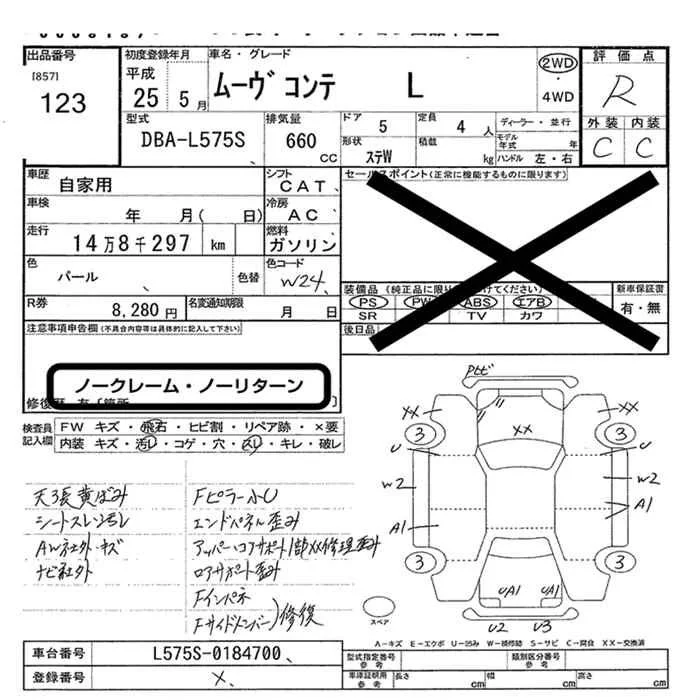 出品番号 初度登録年月 車名・グレード 2WD 評価点
[857] 平成
123 25年 5月 ムーヴ コンテ L ・4WD R
型式 排気量 ドア 定員 ディーラー・並行 外装 内装
DBA-L575S 660 CC 5 4人 モデル年式 年 C C
形状 積載
ステW kg ハンドル 左・右
車歴 シフト セールスポイント(正常に機能するものに限ります)
自家用 CAT
車検 冷房
年 月( 日) AC
走行 燃料
14万8千297 km ガソリン
色 色コード
パール 色替 W24 装備品(純正品に限り けてください) 新車保証書
R券 名変通知期限 PS PW ABS エアB 有・無
8,280円 月 日 SR TV カワ
注意事項申告欄(不具合内容等は具体的に記入して下さい) 後日品
ノークレーム・ノーリターン
修復歴 有〔箇所 〕
検査員記入欄 FW キズ・飛石・ヒビ割・リペア跡・×要
内装 キズ・汚レ・コゲ・穴・スレ・キレ・破レ
天張黄ばみ Fピラー小U
シートスレ汚レ エンドパネル歪み
AW社外・キズ アッパー・コアサポート1部XX修理歪み
ナビ社外 ロアサポート歪み
Fインパネ
Fサイドメンバー)修復
XX XX
XX
3 3
U U
W2 W2
A1 A1
3 3
UA1 UA1
U2 U3
スペア
A-キズ E-エクボ U-凹み W-板修跡 S-サビ C-腐食 XX-交換済
車台番号 L575S-0184700
登録番号 ×
型式指定番号 参考 類別区分番号 参考
車庫証明用 参考 長さ cm 幅 cm 高さ cm